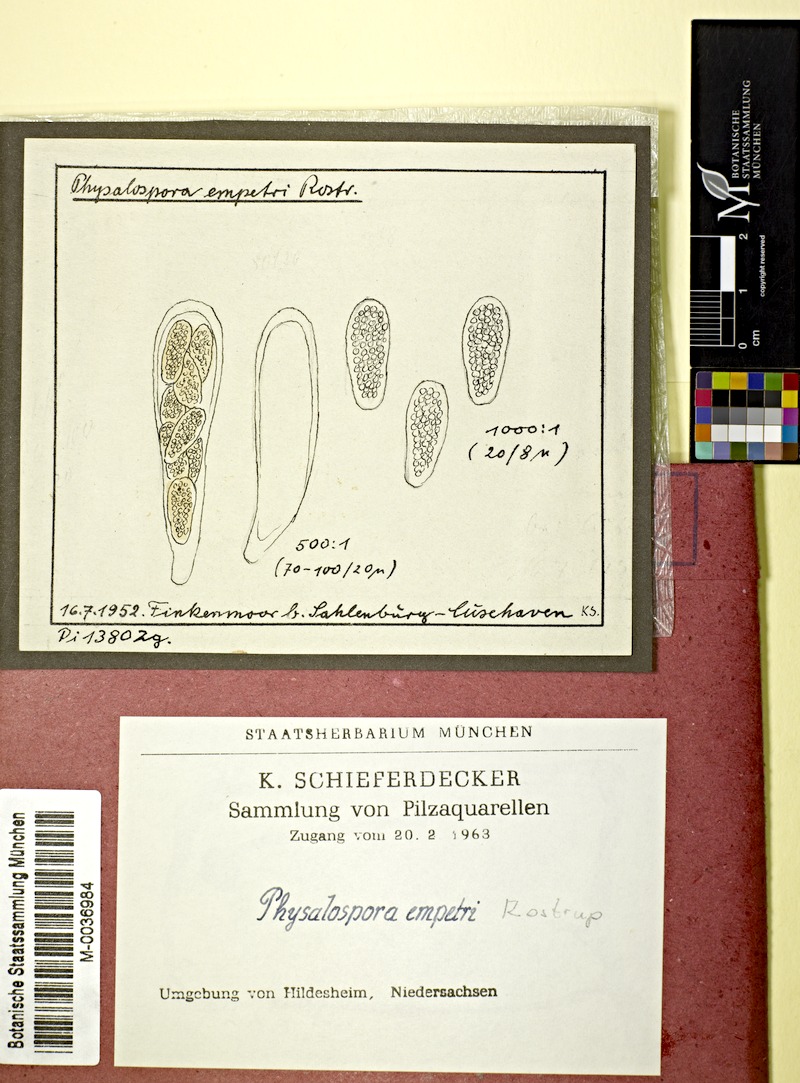 Physalospora empetri Rostr.
1000:1
(20/8µ)
500:1
(70-100/20µ)
16.7.1952. Finkenmoor b. Sahlenburg-Cuxhaven KS.
Pi 13802g.
STAATSHERBARIUM MÜNCHEN
K. SCHIEFERDECKER
Sammlung von Pilzaquarellen
Zugang vom 20. 2 1963
Physalospora empetri Rostrup
Umgebung von Hildesheim, Niedersachsen
Botanische Staatssammlung München
M-0036984
BOTANISCHE
STAATSSAMMLUNG
MÜNCHEN
0 1 2
cm
copyright reserved